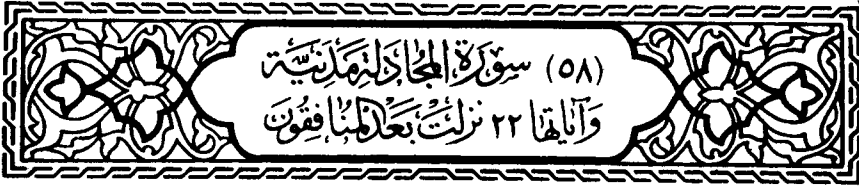 (٥٨) سُورَةُ المجَادلةِ مَدَنِيَّة
وَآيَاتَهَا ٢٢ نَزَلَتْ بَعْدَ المُنَافِقُونَ